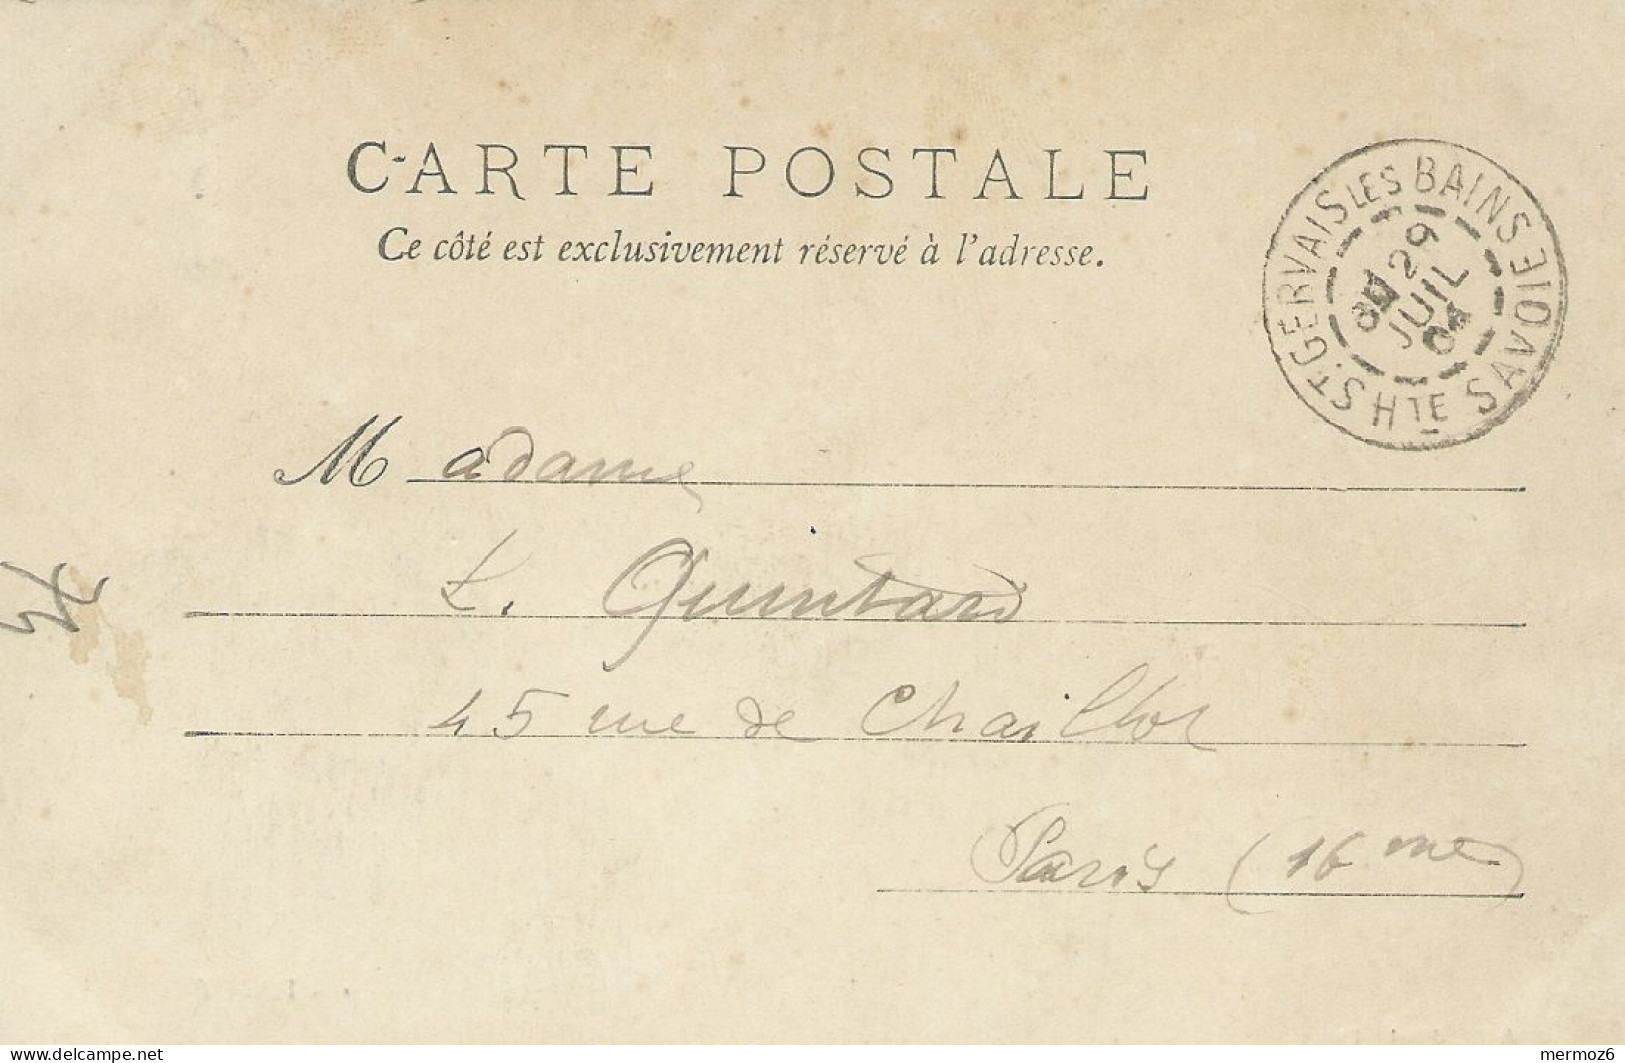 CARTE POSTALE
Ce côté est exclusivement réservé à l'adresse.
ST. GERVAIS LES BAINS HTE SAVOIE
29
JUIL
04
Madame
L. Quintard
45 rue de Chaillot
Paris (16me)
www.delcampe.net
mermoz6